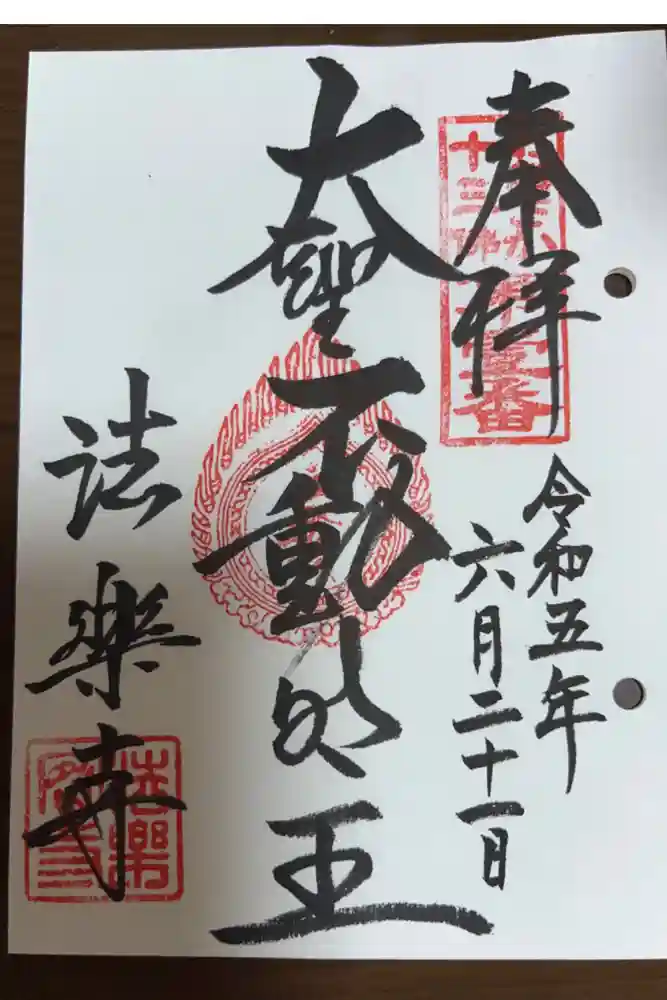 奉拝
十三佛第壹番
令和五年
六月二十一日
大聖不動明王
法樂寺